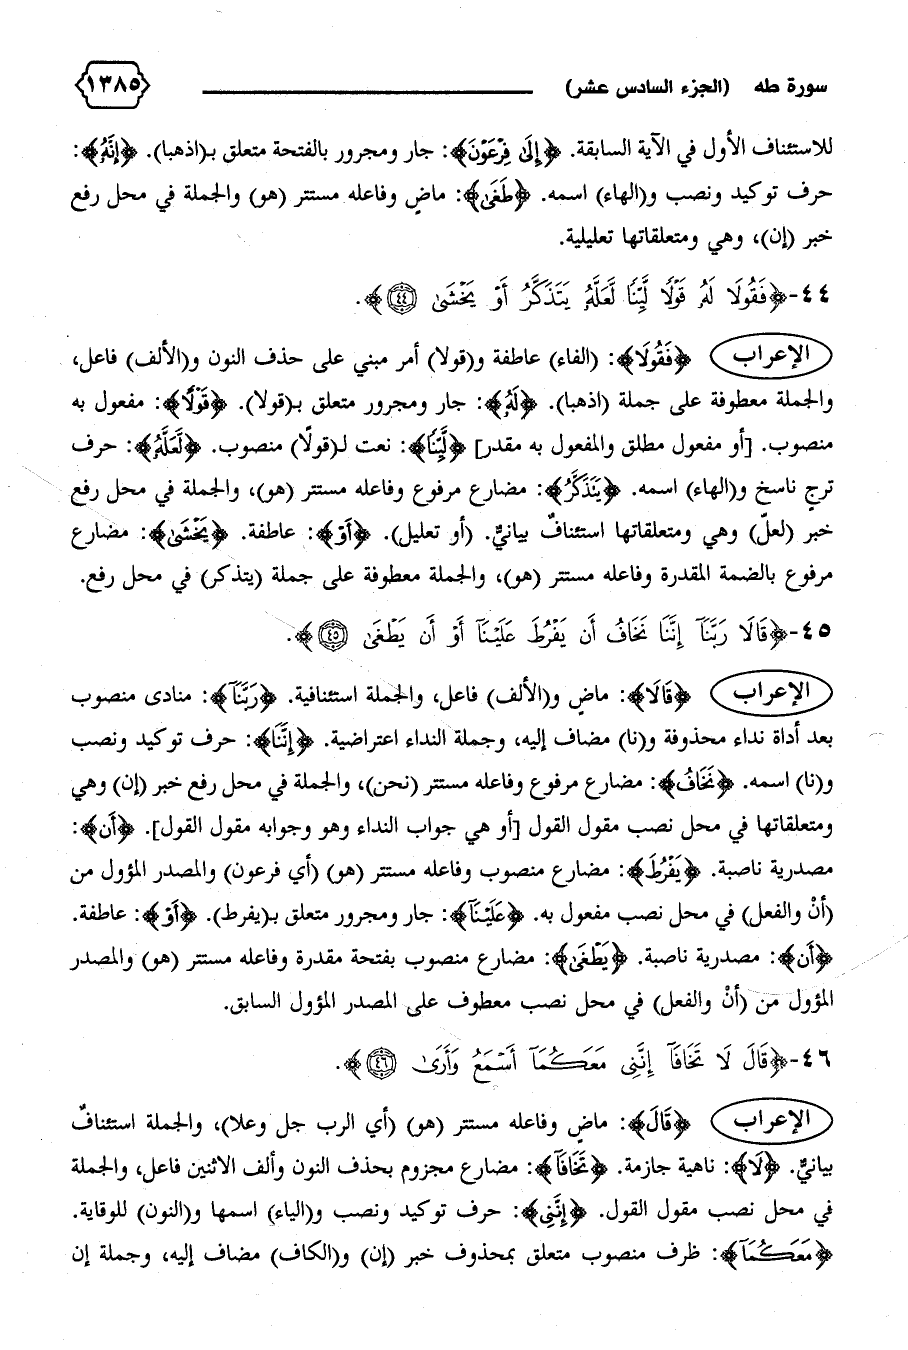 سورة طه (الجزء السادس عشر) ١٣٨٥
للاستئناف الأول في الآية السابقة. ﴿إِلَىٰ فِرْعَوْنَ﴾: جار ومجرور بالفتحة متعلق بـ(اذهبا). ﴿إِنَّهُ﴾:
حرف توكيد ونصب و(الهاء) اسمه. ﴿طَغَىٰ﴾: ماضٍ وفاعله مستتر (هو) والجملة في محل رفع
خبر (إن)، وهي ومتعلقاتها تعليلية.
٤٤-﴿فَقُولَا لَهُۥ قَوْلًا لَّيِّنًا لَّعَلَّهُۥ يَتَذَكَّرُ أَوْ يَخْشَىٰ ٤٤﴾.
الإعراب ﴿فَقُولَا﴾: (الفاء) عاطفة و(قولا) أمر مبني على حذف النون و(الألف) فاعل،
والجملة معطوفة على جملة (اذهبا). ﴿لَهُۥ﴾: جار ومجرور متعلق بـ(قولا). ﴿قَوْلًا﴾: مفعول به
منصوب. [أو مفعول مطلق والمفعول به مقدر] ﴿لَّيِّنًا﴾: نعت لـ(قولًا) منصوب. ﴿لَّعَلَّهُۥ﴾: حرف
ترجٍ ناسخ و(الهاء) اسمه. ﴿يَتَذَكَّرُ﴾: مضارع مرفوع وفاعله مستتر (هو)، والجملة في محل رفع
خبر (لعلّ) وهي ومتعلقاتها استئنافٌ بيانيٌّ. (أو تعليل). ﴿أَوْ﴾: عاطفة. ﴿يَخْشَىٰ﴾: مضارع
مرفوع بالضمة المقدرة وفاعله مستتر (هو)، والجملة معطوفة على جملة (يتذكر) في محل رفع.
٤٥-﴿قَالَا رَبَّنَآ إِنَّنَا نَخَافُ أَن يَفْرُطَ عَلَيْنَآ أَوْ أَن يَطْغَىٰ ٤٥﴾.
الإعراب ﴿قَالَا﴾: ماضٍ و(الألف) فاعل، والجملة استئنافية. ﴿رَبَّنَآ﴾: منادى منصوب
بعد أداة نداء محذوفة و(نا) مضاف إليه، وجملة النداء اعتراضية. ﴿إِنَّنَا﴾: حرف توكيد ونصب
و(نا) اسمه. ﴿نَخَافُ﴾: مضارع مرفوع وفاعله مستتر (نحن)، والجملة في محل رفع خبر (إن) وهي
ومتعلقاتها في محل نصب مقول القول [أو هي جواب النداء وهو وجوابه مقول القول]. ﴿أَن﴾:
مصدرية ناصبة. ﴿يَفْرُطَ﴾: مضارع منصوب وفاعله مستتر (هو) (أي فرعون) والمصدر المؤول من
(أنْ والفعل) في محل نصب مفعول به. ﴿عَلَيْنَآ﴾: جار ومجرور متعلق بـ(يفرط). ﴿أَوْ﴾: عاطفة.
﴿أَن﴾: مصدرية ناصبة. ﴿يَطْغَىٰ﴾: مضارع منصوب بفتحة مقدرة وفاعله مستتر (هو) والمصدر
المؤول من (أنْ والفعل) في محل نصب معطوف على المصدر المؤول السابق.
٤٦-﴿قَالَ لَا تَخَافَآ إِنَّنِى مَعَكُمَآ أَسْمَعُ وَأَرَىٰ ٤٦﴾.
الإعراب ﴿قَالَ﴾: ماضٍ وفاعله مستتر (هو) (أي الرب جل وعلا)، والجملة استئنافٌ
بيانيٌّ. ﴿لَا﴾: ناهية جازمة. ﴿تَخَافَآ﴾: مضارع مجزوم بحذف النون وألف الاثنين فاعل، والجملة
في محل نصب مقول القول. ﴿إِنَّنِى﴾: حرف توكيد ونصب و(الياء) اسمها و(النون) للوقاية.
﴿مَعَكُمَآ﴾: ظرف منصوب متعلق بمحذوف خبر (إن) و(الكاف) مضاف إليه، وجملة إن